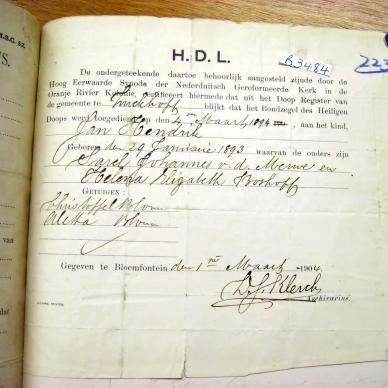 H. D. L.
B3484
De ondergeteekende daartoe behoorlijk aangesteld zijnde door de
Hoog Eerwaarde Synode der Nederduitsch Gereformeerde Kerk in de
Oranje Rivier Kolonie, certificeert hiermede dat uit het Doop Register van
de gemeente te blijkt dat het Bondzegel des Heiligen
Doops werd toegediend den Maart aan het kind,
Jan Hendrik
Geboren den 29 Januarie 1893 waarvan de ouders zijn
Carel Johannes v. d. Merwe en
Helena Elizabeth Boshoff
Getuigen:
Christoffel Blom
Aletta Blom
Gegeven te Bloemfontein den 1 Maart 1904
Archivarius.
van